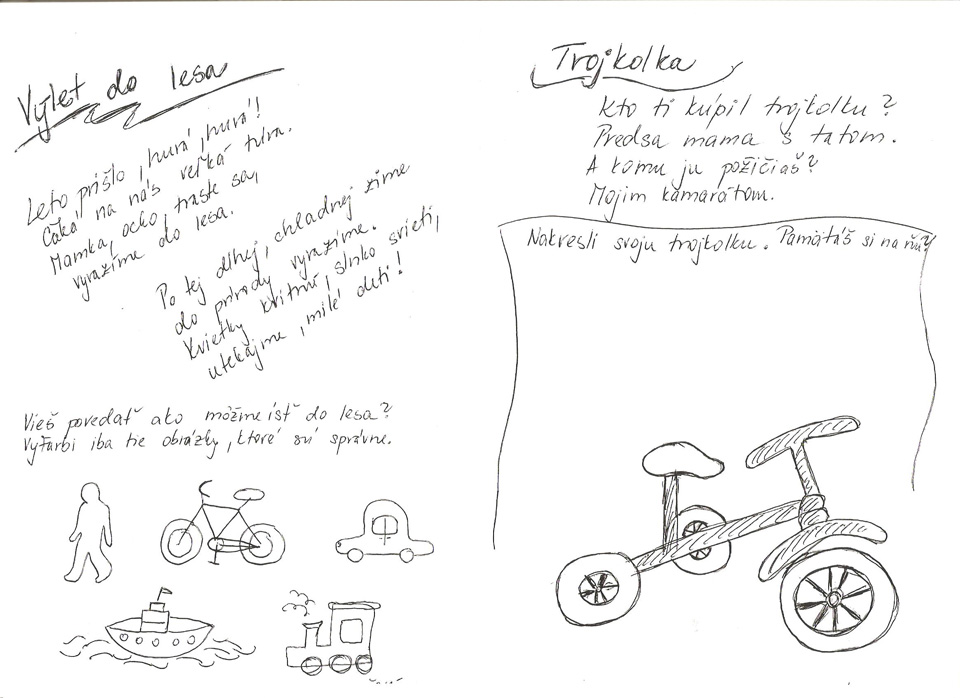 Výlet do lesa
Leto prišlo, hurá, hurá!
Čaká na nás veľká túra.
Mamka, ocko, traste sa,
vyrazíme do lesa.
Po tej dlhej, chladnej zime
do prírody vyrazíme.
Kvietky kvitnú, slnko svieti,
utekajme, milé deti!
Vieš povedať ako môžme ísť do lesa?
Vyfarbi iba tie obrázky, ktoré sú správne.
Trojkolka
Kto ti kúpil trojkolku?
Predsa mama s tatom.
A komu ju požičiaš?
Mojim kamarátom.
Nakresli svoju trojkolku. Pamätáš si na ňu?